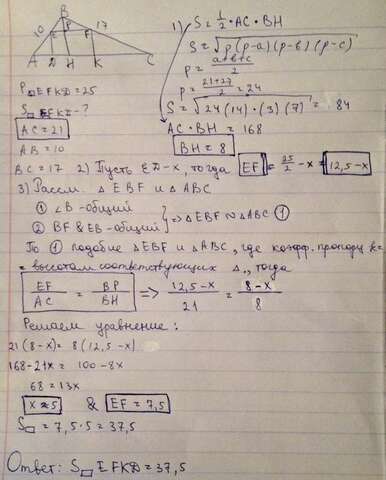 B
10 P 17
E F
A D H K C
P□EFKD = 25
S□EFKD - ?
AC = 21
AB = 10
BC = 17
1) S = 1/2 · AC · BH
S = √p(p-a)(p-b)(p-c)
p = a+b+c/2
p = 21+27/2 = 24
S = √24(14)·(3)(7) = 84
AC · BH = 168
BH = 8
2) Пусть ED - x, тогда EF = 25/2 - x = 12,5 - x
3) Рассм. △ EBF и △ ABC
① ∠B - общий
② BF & EB - общий } => △EBF ∾ △ABC ①
По ① подобие △EBF и △ABC, где коэфф. пропорц k =
= высотам соответствующих △, тогда
EF/AC = BP/BH => 12,5-x/21 = 8-x/8
Решаем уравнение:
21(8-x) = 8(12,5-x)
168-21x = 100-8x
68 = 13x
x ≈ 5 & EF = 7,5
S□ = 7,5·5 = 37,5
Ответ: S□EFKD = 37,5